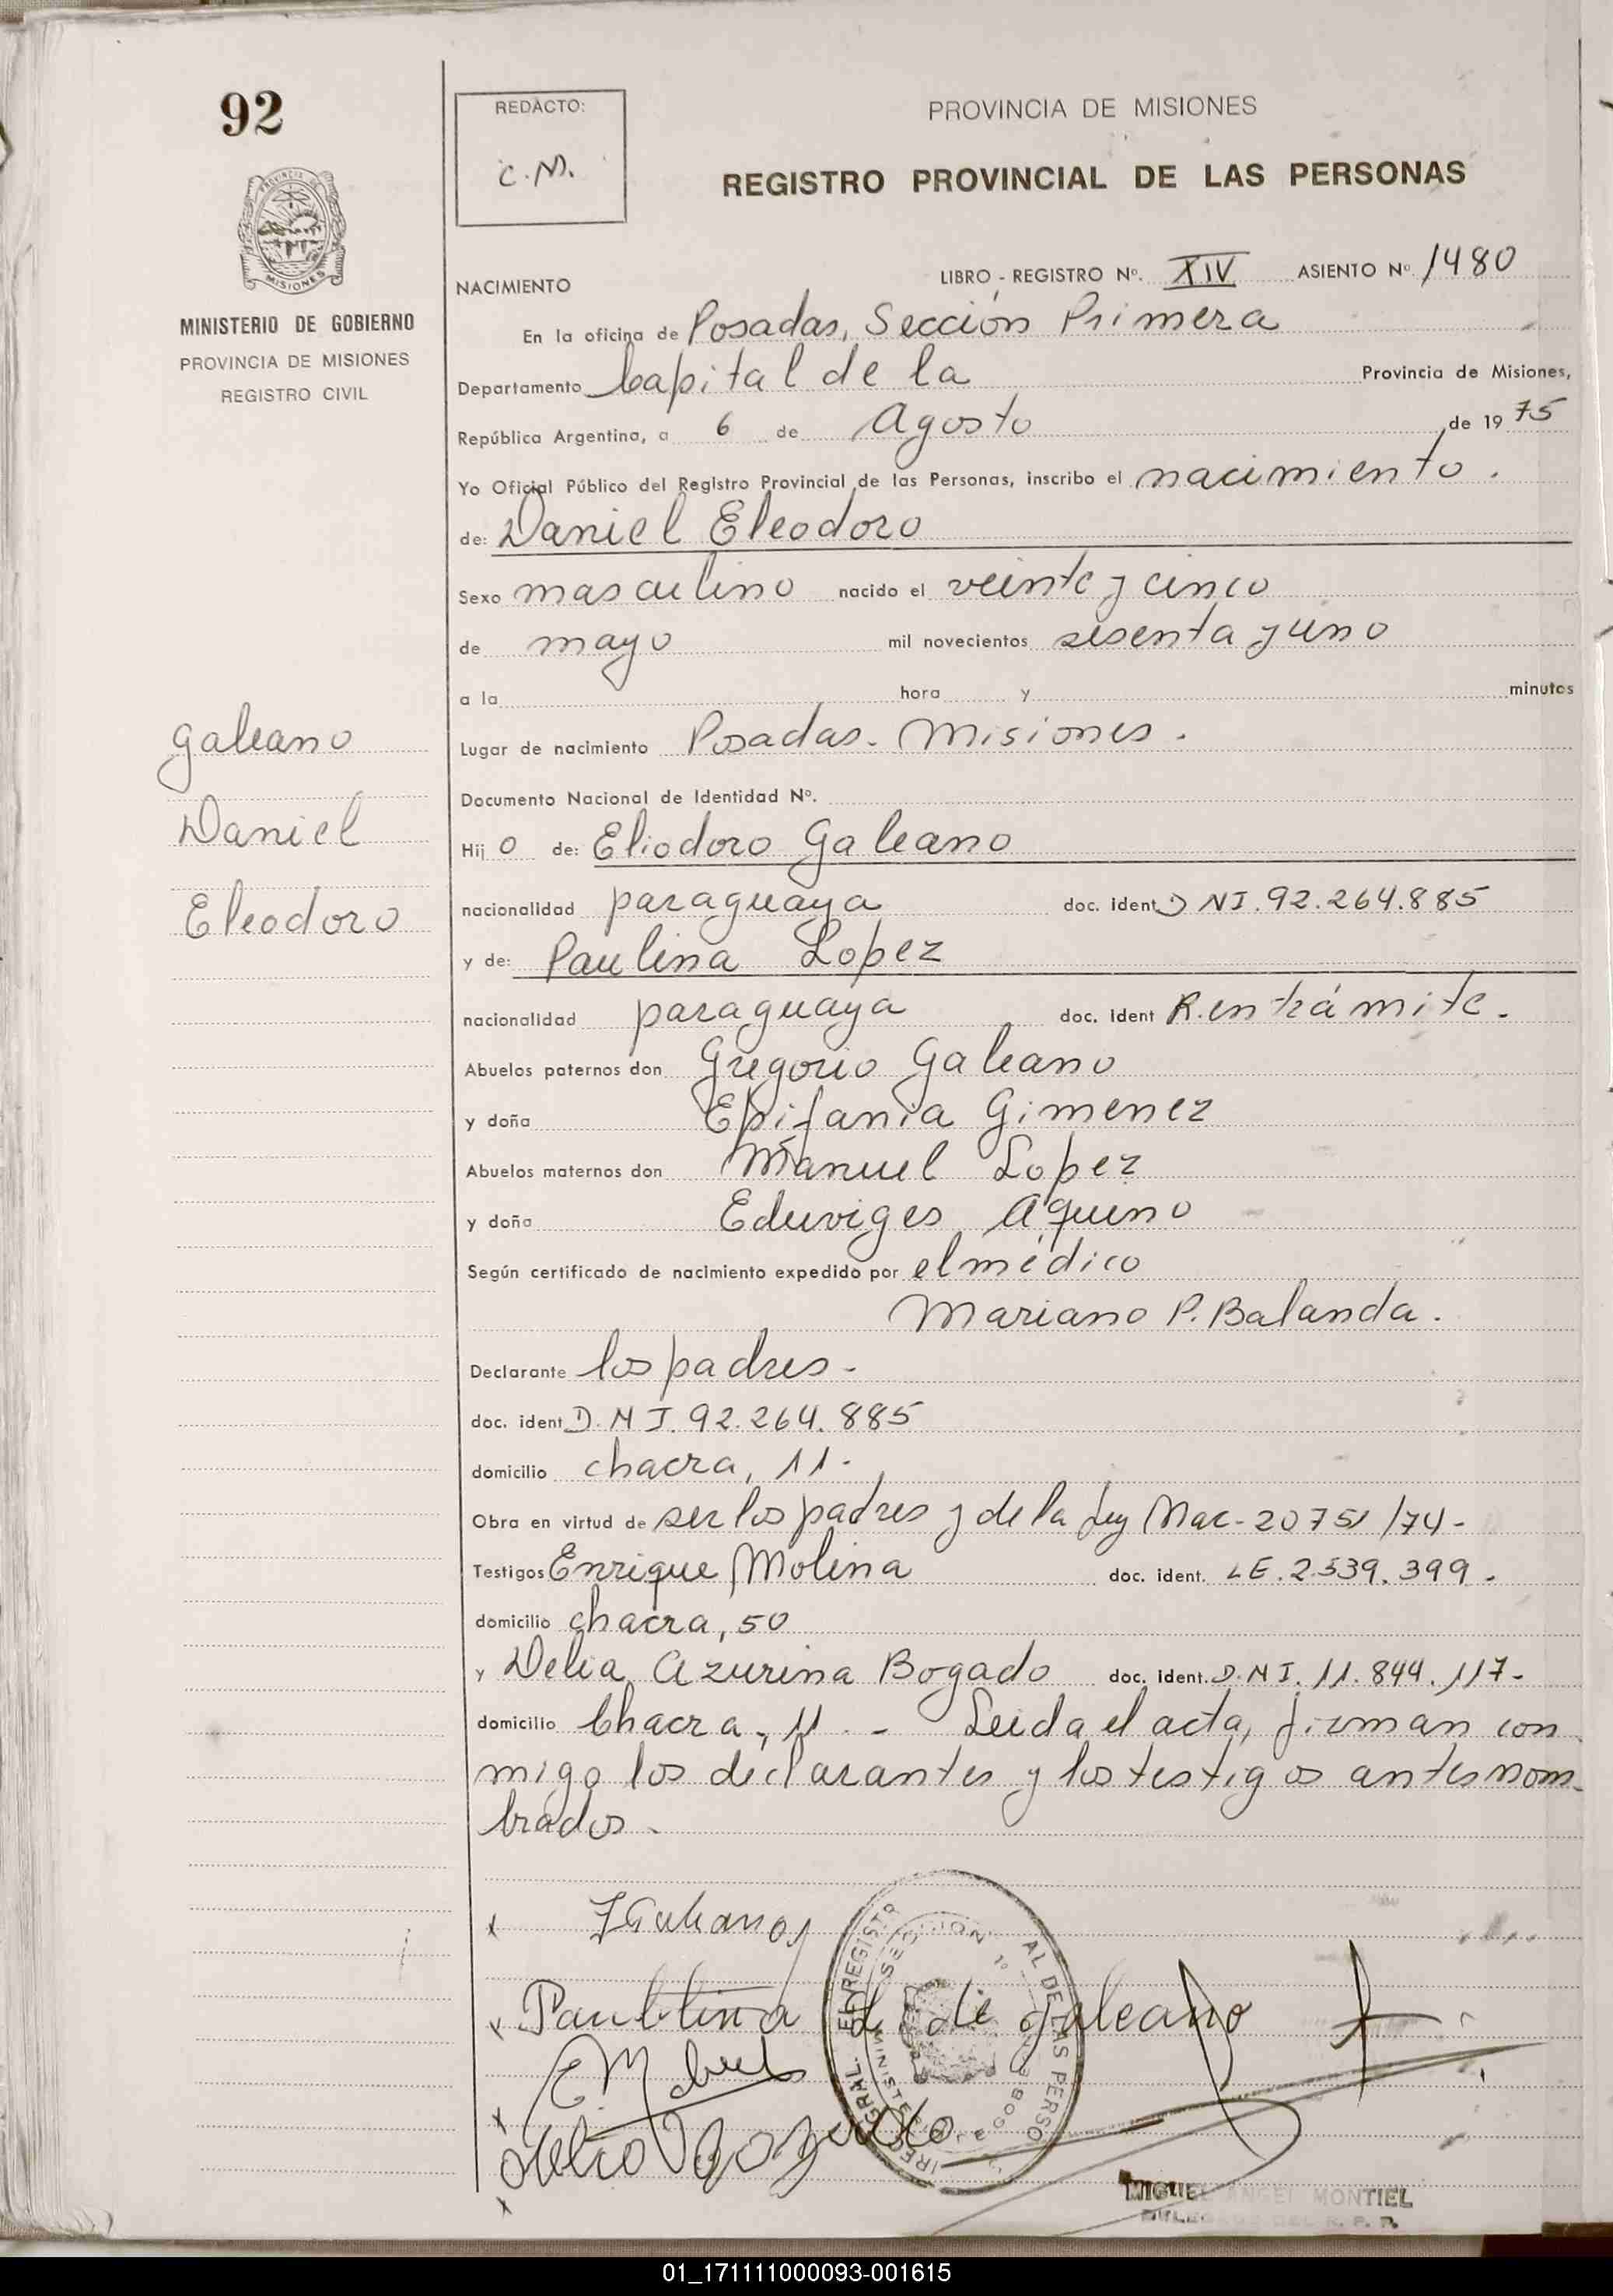 92
REDACTO:
C.M.
PROVINCIA DE MISIONES
REGISTRO PROVINCIAL DE LAS PERSONAS
PROVINCIA DE MISIONES
MINISTERIO DE GOBIERNO
PROVINCIA DE MISIONES
REGISTRO CIVIL
NACIMIENTO LIBRO - REGISTRO Nº. XIV ASIENTO Nº 1480
En la oficina de Posadas, Sección Primera
Departamento Capital de la Provincia de Misiones,
República Argentina, a 6 de Agosto de 1975
Yo Oficial Público del Registro Provincial de las Personas, inscribo el nacimiento.
de: Daniel Eleodoro
Sexo masculino nacido el veinte y cinco
de mayo mil novecientos sesenta y uno
a la hora y minutos
Galeano
Daniel
Eleodoro
Lugar de nacimiento Posadas. Misiones.
Documento Nacional de Identidad Nº.
Hij o de: Eliodoro Galeano
nacionalidad paraguaya doc. ident D NI. 92.264.885
y de: Paulina Lopez
nacionalidad paraguaya doc. ident R. en trámite.
Abuelos paternos don Gregorio Galeano
y doña Epifania Gimenez
Abuelos maternos don Manuel Lopez
y doña Eduviges Aquino
Según certificado de nacimiento expedido por el médico
Mariano P. Balanda.
Declarante los padres-
doc. ident D.N I. 92.264.885
domicilio chacra, 11.
Obra en virtud de ser los padres y de la Ley Nac-20751/74-
Testigos Enrique Molina doc. ident. LE.2.539.399.
domicilio chacra, 50
y Delia Azurina Bogado doc. ident. D.N I. 11.844.117-
domicilio Chacra, 11 . - Leida el acta, firman con
migo los declarantes y los testigos antes nom-
brados.
x Galeano
x Paulina L de Galeano
x
x
SECCION 1º
MIGUEL ANGEL MONTIEL
R. P. P.
01_171111000093-001615